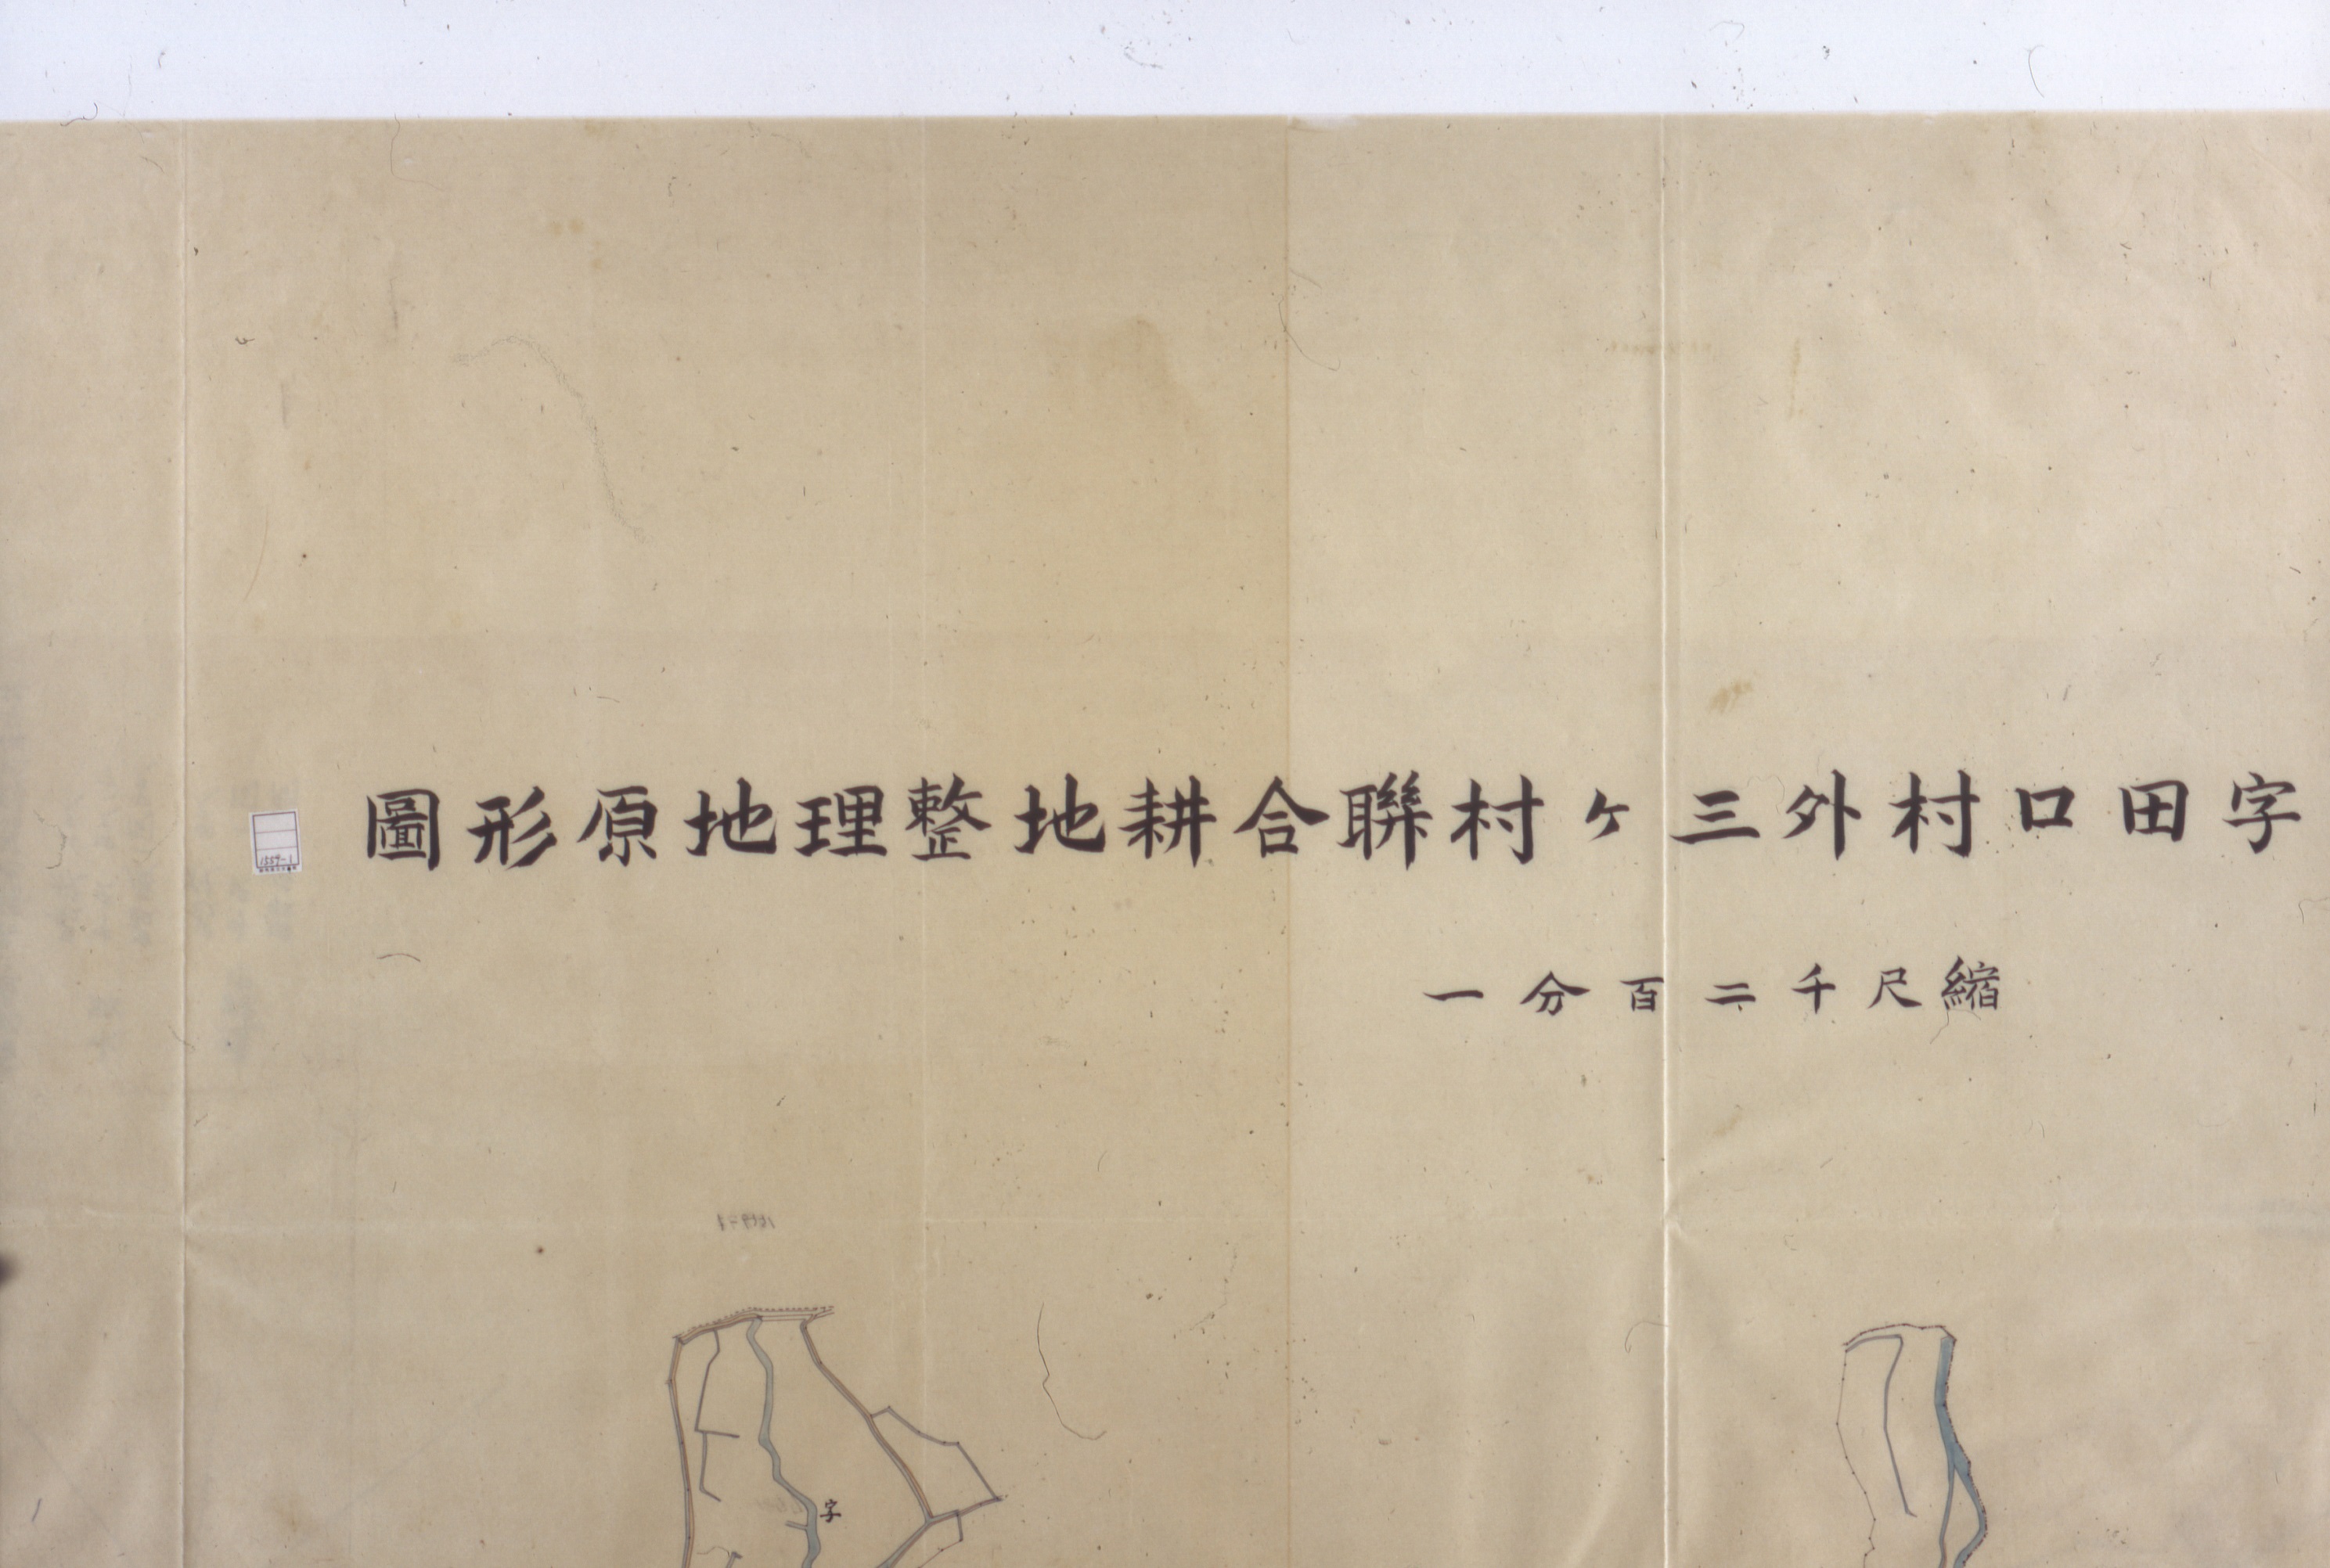 字田口村外三ケ村聯合耕地整理地原形圖
縮尺千二百分一
1559-1
字